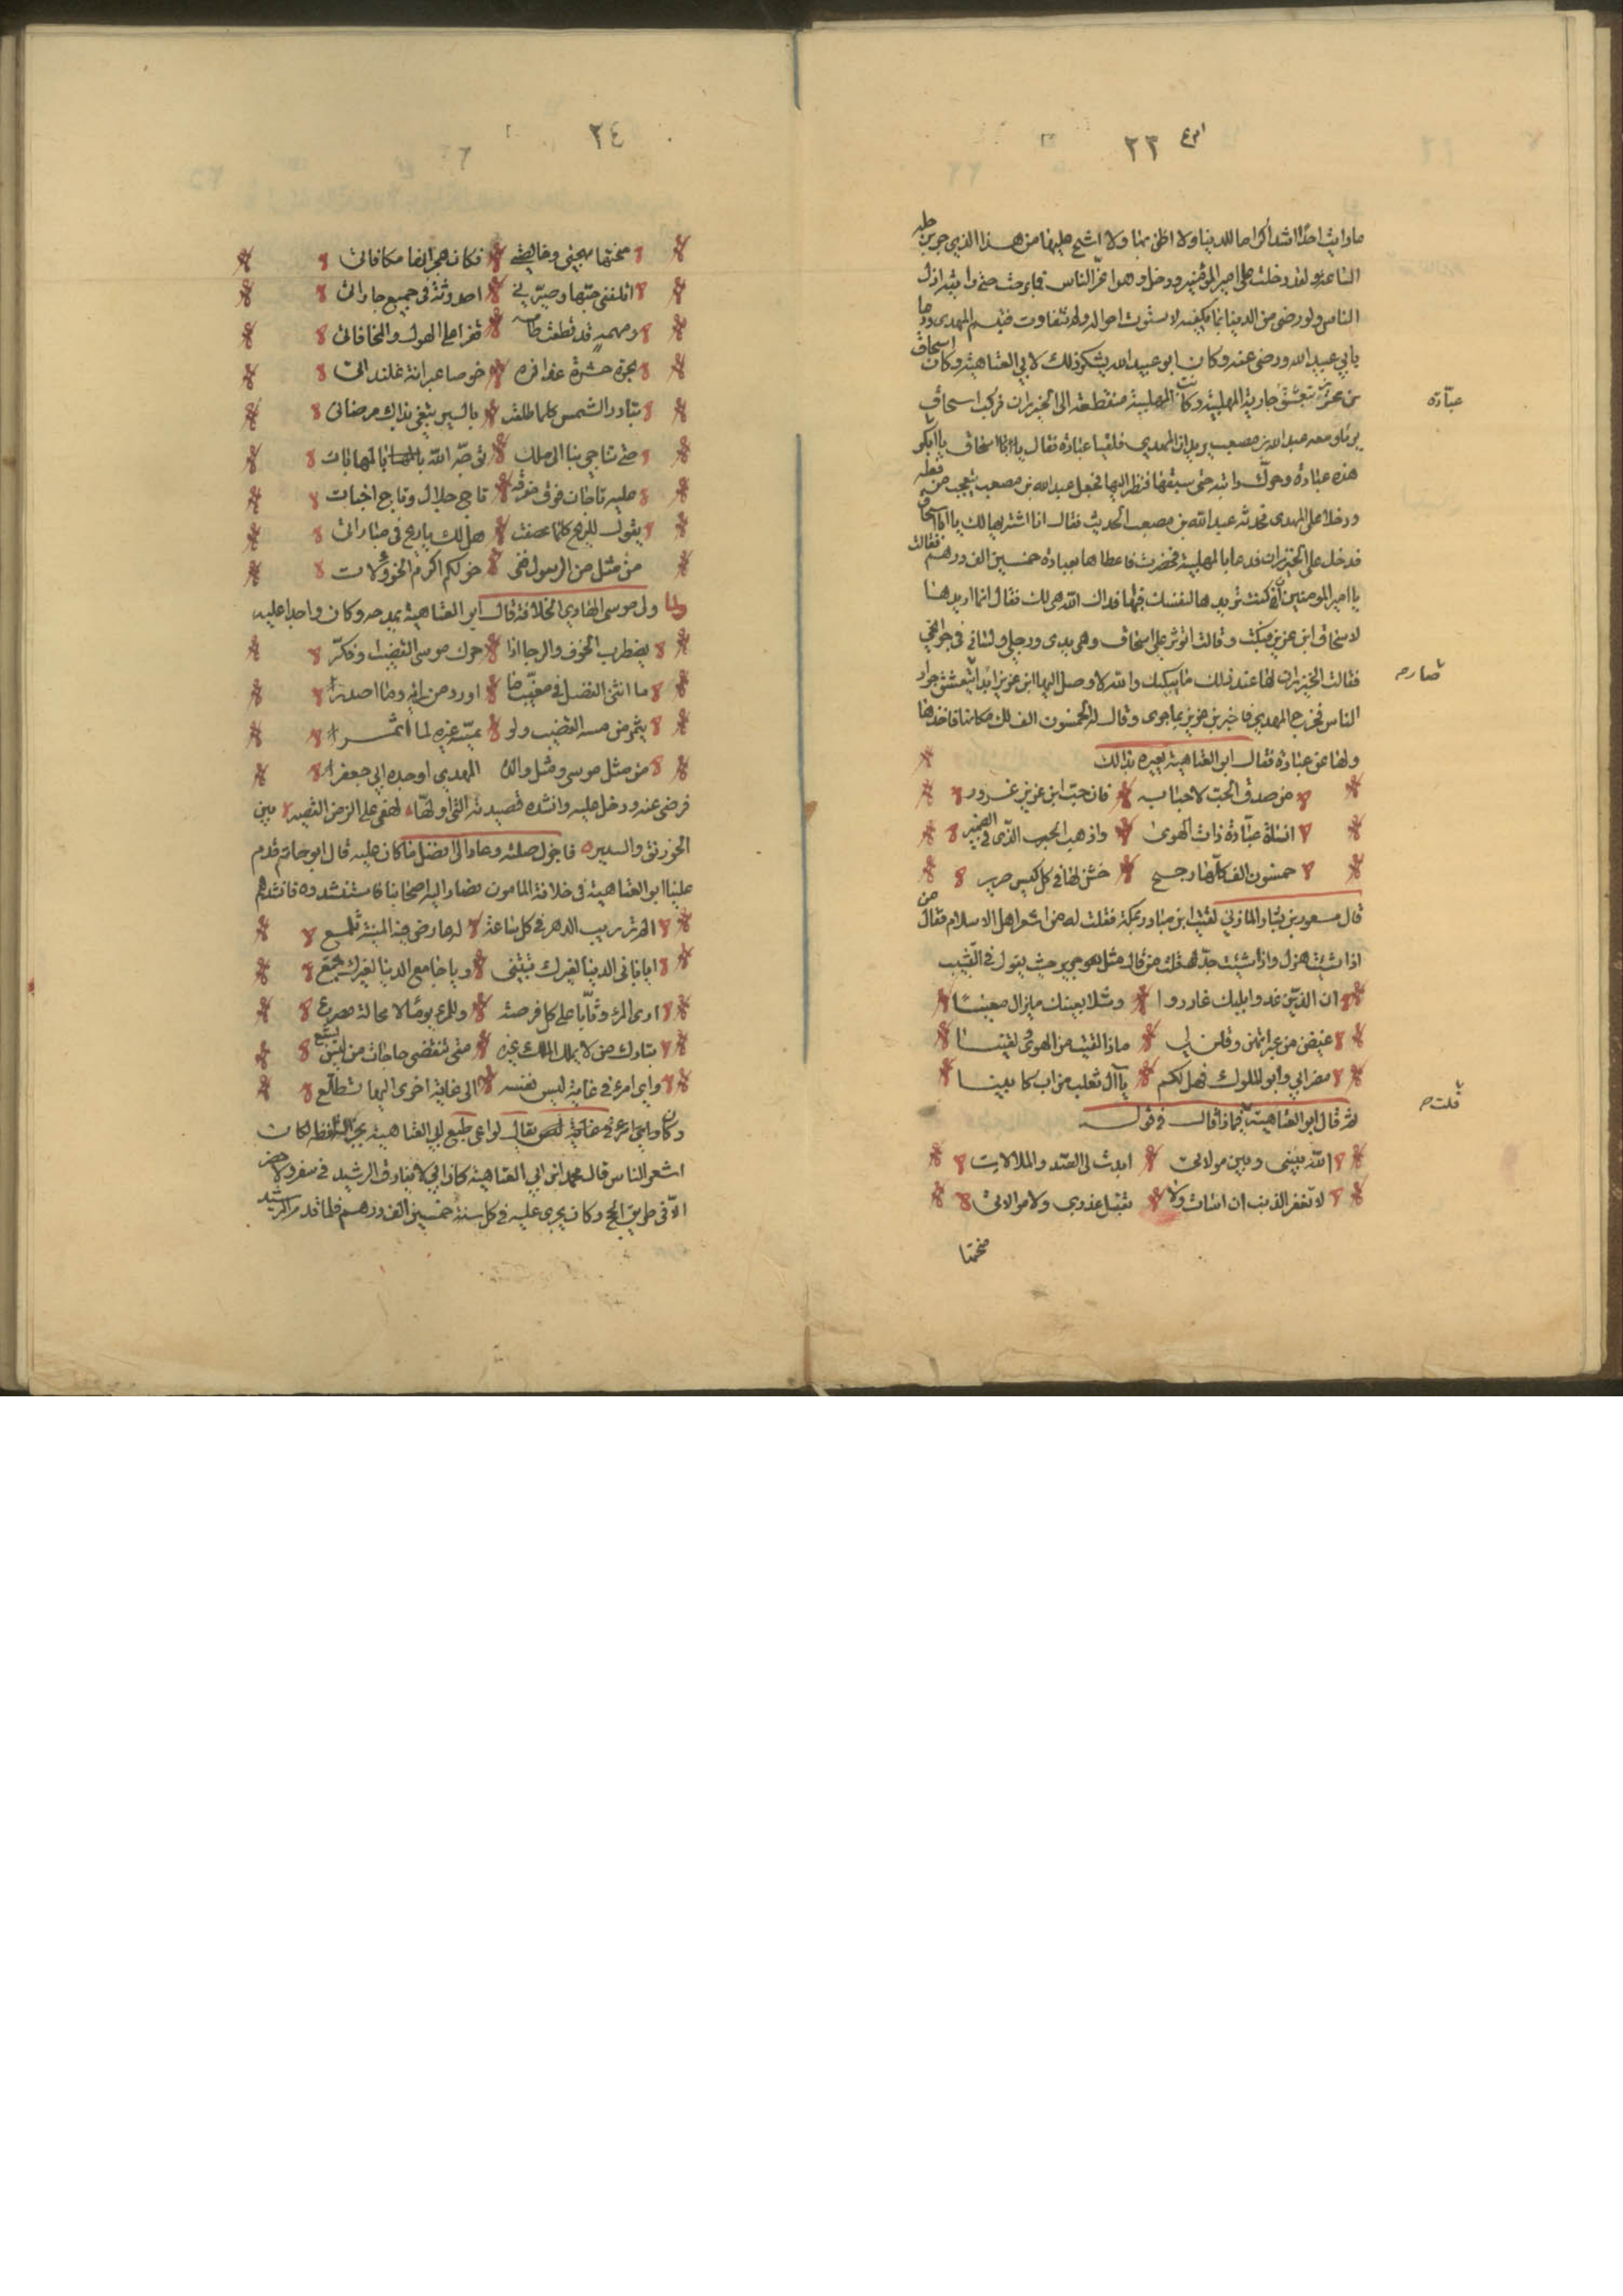 ٢٣
ما رايت احدًا اشد اكراما للدنيا ولا اظن بها ولا اشح عليها من هذا الذي جرين عليه
الساعة ولقد دخلت على امير المؤمنين ودخل وهو اعز الناس فما برحت حتى رايته اذل
الناس ولو رضى من الدنيا بما يكفيه لاستوت احواله ولم تتفاوت فتبسم المهدى ودعا
بابي عبيد الله ورضى عنه وكان ابو عبيد الله يشكر ذلك لابي العتاهية وكان اسحاق
بن عزيز يتعشق جارية المهلبية وكانت المهلبية منقطعة الى الخيزران فركب اسحاق
عبّادة
يوما ومعه عبد الله بن مصعب يريدان المهدي فلقيا عبادة فقال يا ابا اسحاق يا ابا بكر
هذه عبادة وحرك دابته حتى سبقها فنظر اليها فجعل عبد الله بن مصعب يتعجب من فعله
ودخلا على المهدى فحدثه عبد الله بن مصعب الحديث فقال انا اشتريها لك يا ابا اسحاق
فدخل على الخيزران فدعا بالمهلبية فحضرت فاعطاها بعبادة خمسين الف درهم فقالت
يا امير المومنين ان كنت تريدها لنفسك فبها فداك الله هي لك فقال انما اريدها
لاسحاق ابن عزيز فبكت وقالت اتوثر علي اسحاق وهي يدى ورجلي ولساني في حوائجي
فقالت الخيزران لها عند ذلك ما يبكيك والله لا وصل اليها ابن عزيز ابدًا يتعشق جواري
صارم
الناس فخرج المهدي فاخبر بن عزيز بما جرى وقال له الخمسون الف لك مكانها فاخذها
ولها عن عبادة فقال ابو العتاهية يعيره بذالك
من صدق الحب لاحبابه فان حب ابن عزيز غرور
انساه عبّادة ذات الهوى واذهب الحب الذى في الضمير
خمسون الف كلّها راجح خشن لها في كل كيس صرير
قال مسعود بن بشار المازني لقيت ابن مناذر بمكة فقلت له من اشعر اهل الاسلام فقال من
اذا شئت هزل واذا شئت جدّ قلت من قال مثل جرير حيث يقول في النسيب
ان الذين غدوا بلبك غادروا وشلا بعينك ما يزال معينًا
غيضن من عبراتهن وقلن لي ماذا لقيت من الهوى ولقينا
مضر ابي وابو الملوك فهل لكم يا آل تغلب من اب كابينا
ثم قال ابو العتاهية قلت فماذا قال في قوله
قلت
الله بيني وبين مولاتي ابدت لي الصد والملالات
لا تغفر الذنب ان اسات ولا تقبل عذري ولا مواتاتي
منحتها
٢٤
منحتها مهجتي وخالصتي فكان هجرانها مكافاتي
اقلقني حبّها وصيّرني احدوثة في جميع جاراتي
ومهمه قد قطعت طامسه قفر على الهول والمخافاتي
بحرة جسرة عذافره خوصا عيرانة علنداتي
تبادر الشمس كلما طلعت بالسير تبغي بذاك مرضاتي
حتى تناجي بنا الى ملك توجه الله بالمهابات
عليه تاجان فوق مفرقه تاج جلال وتاج اخبات
يقول للريح كلما عصفت هل لك يا ريح في مباراتي
من مثل من الرسول فى خولكم اكرم الخؤولات
ولما ولى موسى الهادي الخلافة قال ابو العتاهية يمدحه وكان واجدا عليه
يضطرب الخوف والرجا اذا حرك موسى القضيب او فكّر
ما ابين الفضل في مغيّب ما اورد من رايه وما اصدرا
يثمر من مسه القضيب ولو يمسّه غيره لما اثمرا
من مثل موسى ومثل والده المهدي او جده ابي جعفرا
فرضى عنه ودخل عليه وانشده قصيدته التى اولها لهفى على الزمن القصير بين
الخورنق والسدير فاجزل صلته وعاد الى افضل ما كان عليه قال ابو حاتم قدم
علينا ابو العتاهية في خلافة المامون فصار اليه اصحابنا فاستنشدوه فانشدهم
الم تر ريب الدهر في كل ساعة له عارض فيه المنية تلمع
ايا باني الدنيا لغيرك تبتني ويا جامع الدنيا لغيرك تجمع
ارى المرء وثّابا على كل فرصة وللمرء يوما لا محالة مصرع
تبارك من لا يملك الملك غيره متى تنقضى حاجات من ليس يشبع
واي امرء في غاية ليس نفسه الى غاية اخرى اليها تطلّع
وكان واي امرء في غاية يقال لو اعي طبع ابي العتاهية بجزالة لفظه لكان
اشعر الناس قال محمد ابن ابي العتاهية كان ابي لا يفارق الرشيد في سفر ولا حضر
الا في طريق الحج وكان يجرى عليه في كل سنة خمسين الف درهم فلما قدم الرشيد